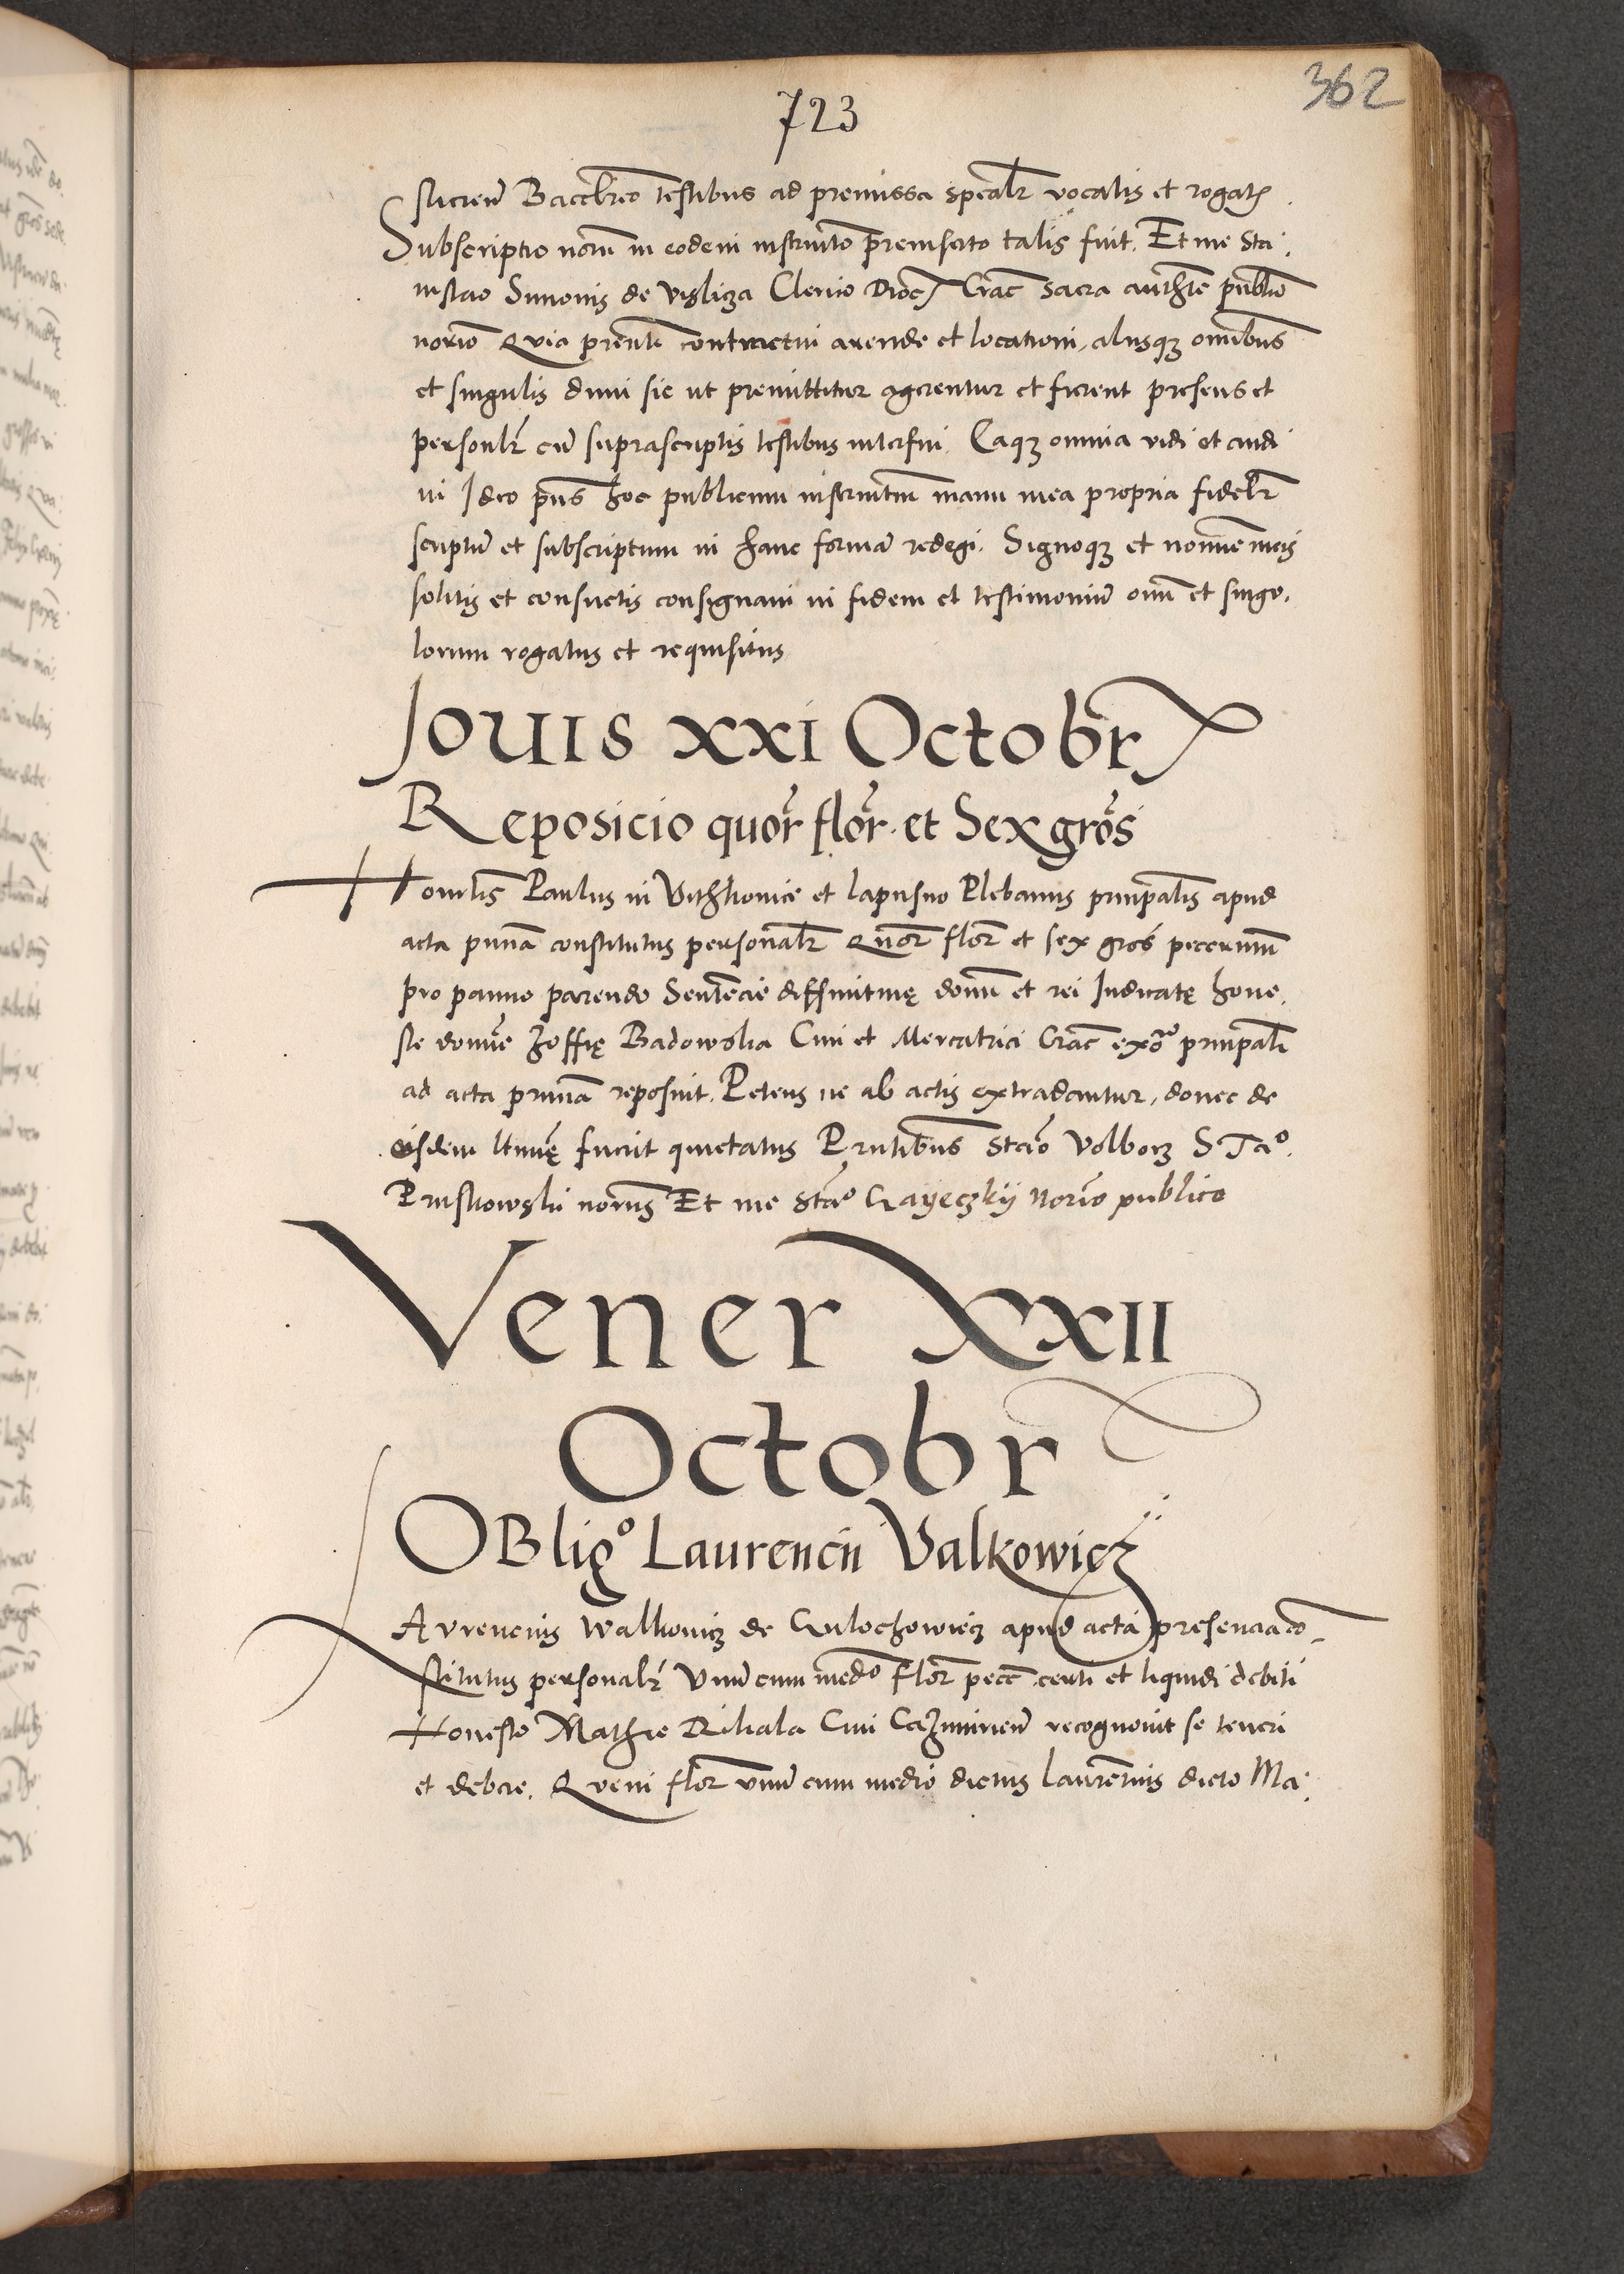 362
723
sticień Bacclreo testibus ad premissa spealr vocatis et rogatis
Subscriptio norij in eodem instrumto preinserto talis fuit. Et me Sta
nislao Simonis de Visliza Clerico Dioc Crac sacra aucthte publico
norio Quia prenti contractui arende et locationi, aliisqz omnibus
et singulis dum sic ut premittitur agerentur et fierent presens et
personlr cu suprascriptis testibus interfui. Eaqz omnia vidi et audi
vi Ideo pns hoc publicum instrumtum manu mea propria fidelr
scriptu et subscriptum in hanc forma redegi. Signoqz et nomine meis
solitis et consuetis consignavi in fidem et testimoniu omi et singo,
lorum rogatus et requisitus
Jouis XXI Octobr
Reposicio quor flor. et Sex gros
Honorlis Paulus in Vithkowice et Lapusno Plebanus prinpalis apud
acta pnna constitutus personalr Quor flor et sex gros pecuniam
pro panno parendo Sentencie diffinitiuę domi et rei Judicatę hone,
ste domne Zoffię Badowska Ciui et Mercatrici Crac exõ prinpali
ad acta pnna reposuit. Petens ne ab actis extradantur, donec de
eisdem ltimę fuerit quietatus Pntibus Stao Volborz S Ta°.
Pruskowski noriis Et me Sta° Gayeczkij Norio publico
Vener XXII
Octobr
OBlig° Laurencii Valkowicz
LAvrencius Walkowicz de Gulochowiecz apud acta presencia co-
stitutus personalr Vnu cum medo flor pecc certi et liquidi debiti
Honesto Mathie Rihala Ciui Cazimirień recognouit se teneri
et debere. Quem flor vnu cum medio dictus Laurentius dicto Ma